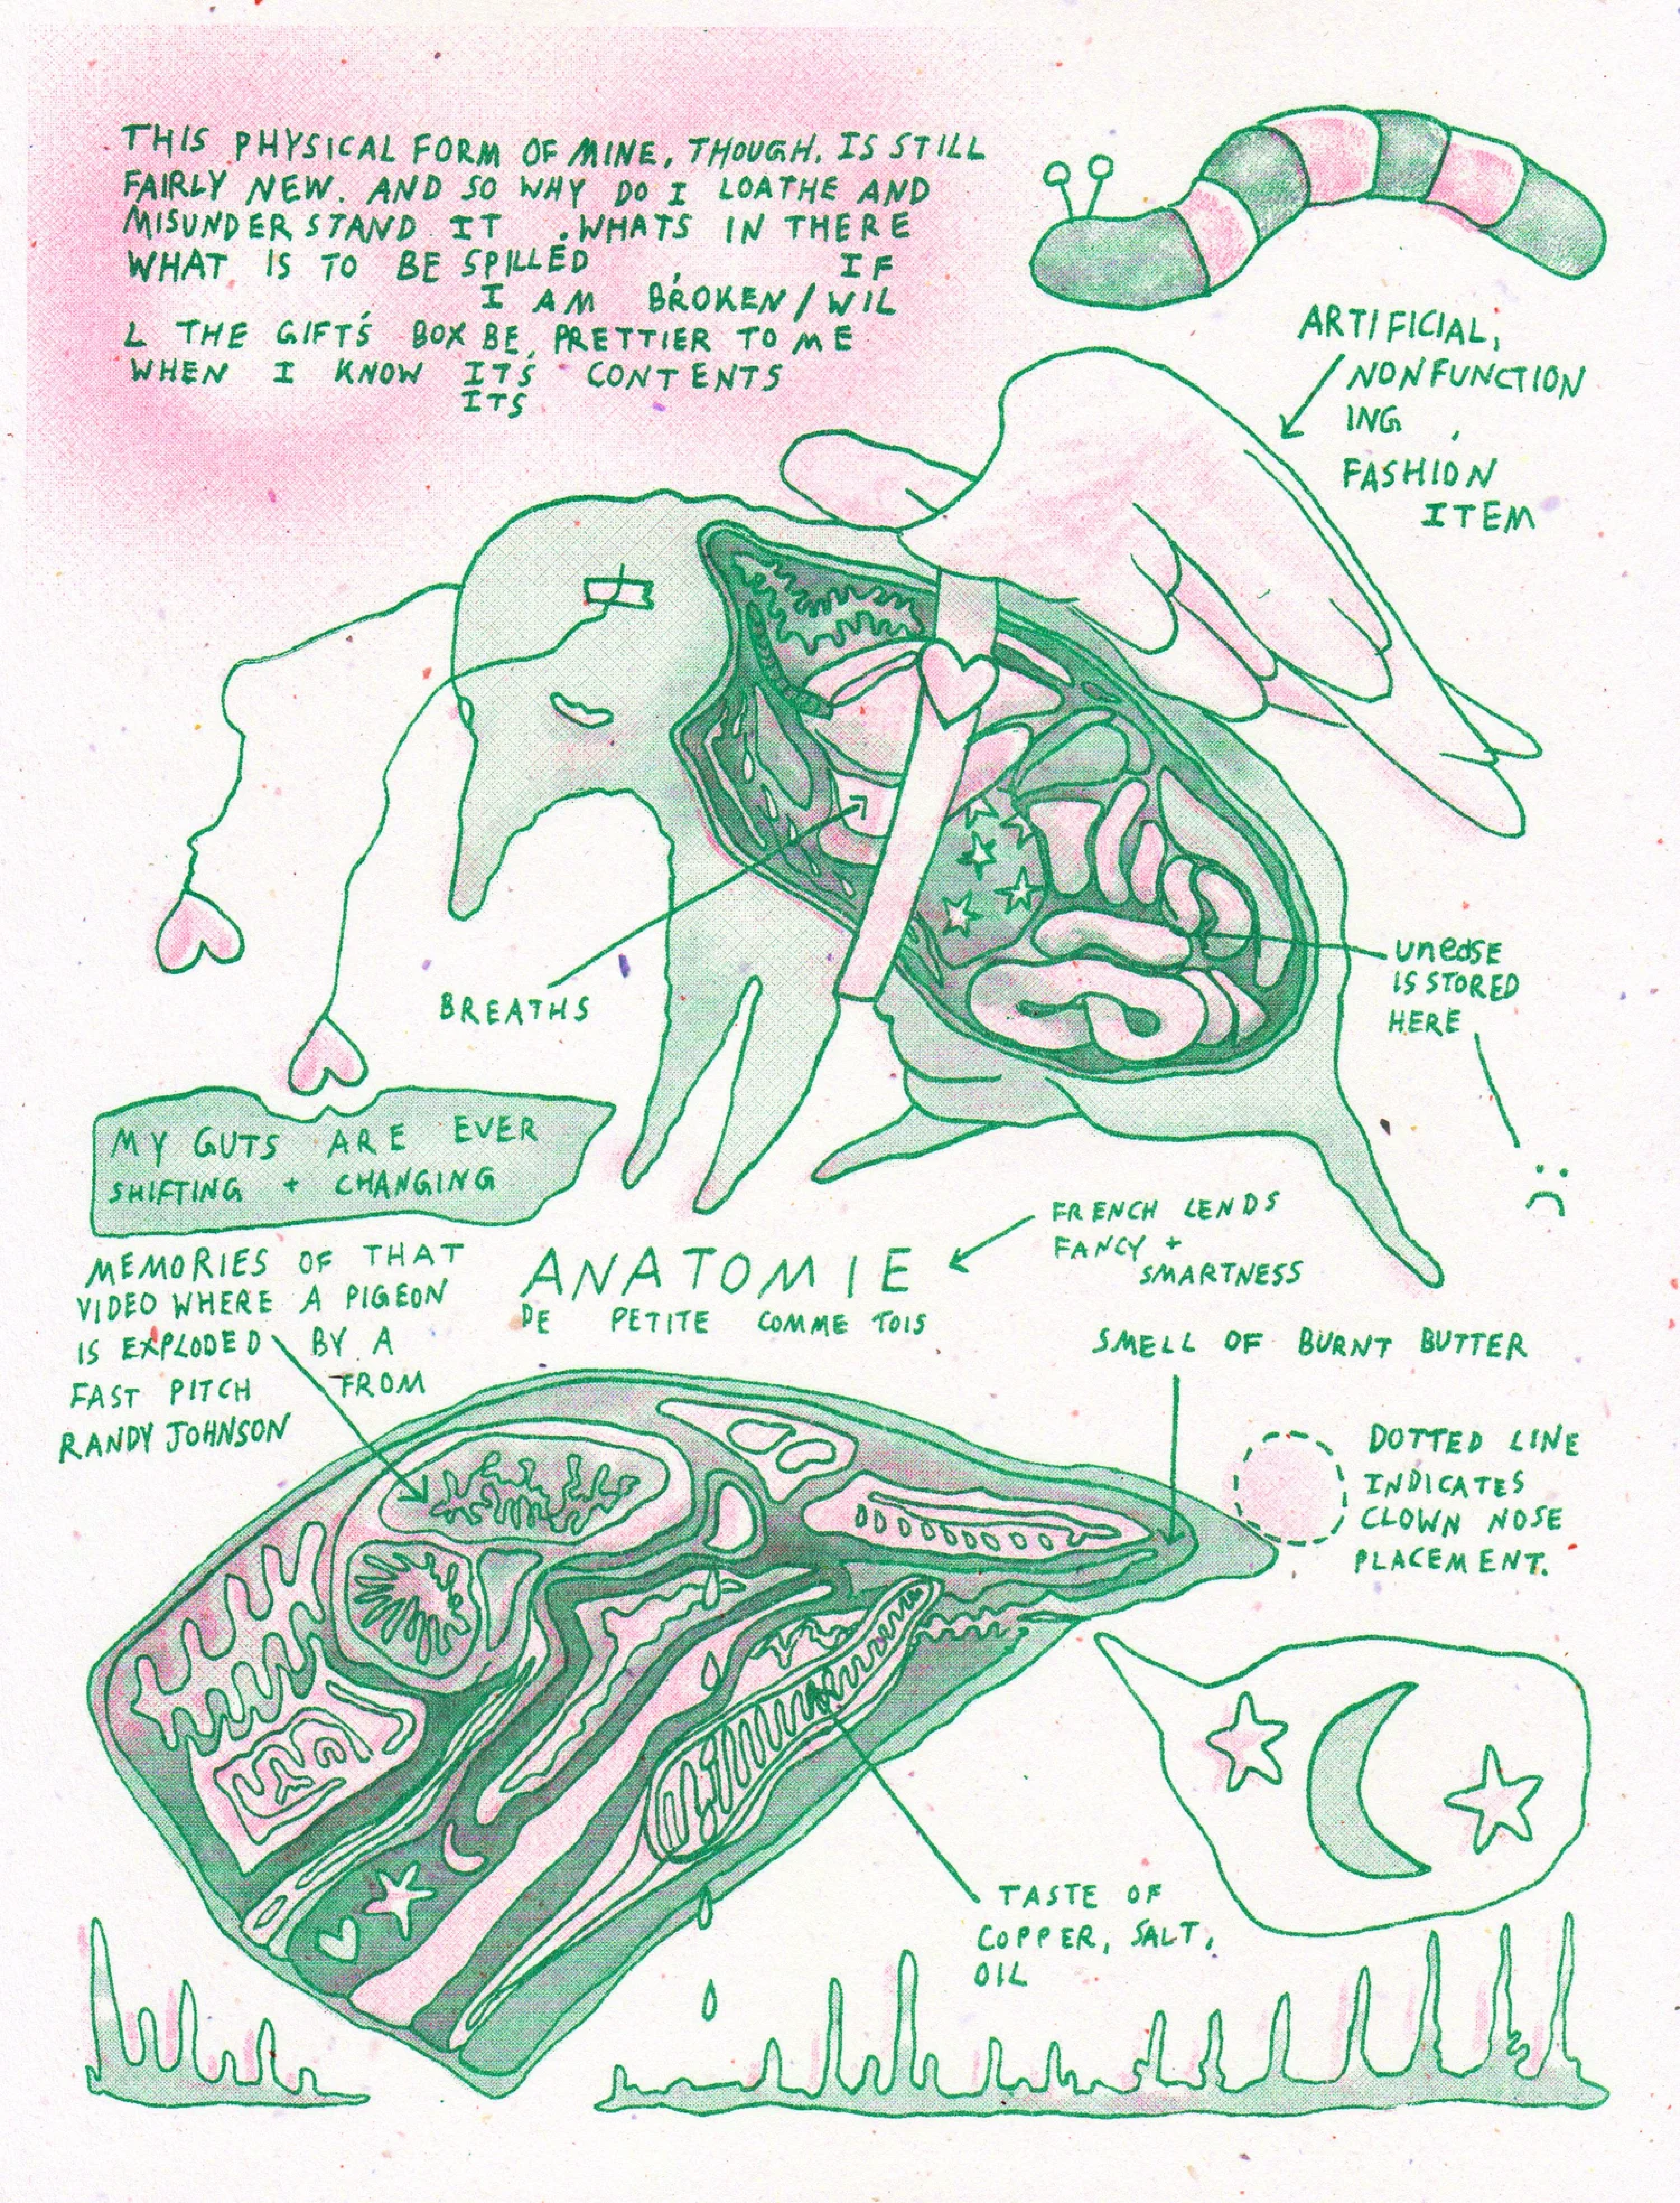 THIS PHYSICAL FORM OF MINE, THOUGH, IS STILL
FAIRLY NEW. AND SO WHY DO I LOATHE AND
MISUNDERSTAND IT . WHATS IN THERE
WHAT IS TO BE SPILLED , IF
I AM BROKEN / WIL
L THE GIFT'S BOX BE PRETTIER TO ME
WHEN I KNOW IT'S CONTENTS
ITS
ARTIFICIAL,
NONFUNCTION
ING ,
FASHION
ITEM
BREATHS
unease
IS STORED
HERE
MY GUTS ARE EVER
SHIFTING + CHANGING
FRENCH LENDS
FANCY +
SMARTNESS
ANATOMIE
DE PETITE COMME TOIS
MEMORIES OF THAT
VIDEO WHERE A PIGEON
IS EXPLODED BY A
FAST PITCH FROM
RANDY JOHNSON
SMELL OF BURNT BUTTER
DOTTED LINE
INDICATES
CLOWN NOSE
PLACEMENT.
TASTE OF
COPPER, SALT,
OIL